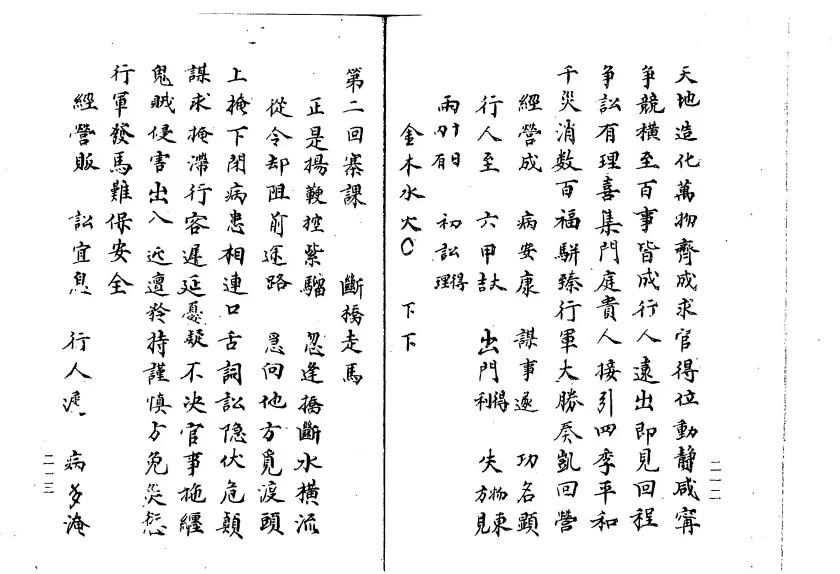 天地造化萬物齊成求官得位動靜咸寧
爭競橫至百事皆成行人遠出即見回程
爭訟有理喜集門庭貴人接引四季平和
千災消散百福駢臻行軍大勝奏凱回營
經營成 病安康 謀事遂 功名顯
行人至 六甲 出門得利 失物東方見
雨 有日 初訟得理
金木水火 下下
二一二
第二回寨課 斷橋走馬
正是揚鞭控紫騮 忽逢橋斷水橫流
從令却阻前途路 急向他方覓渡頭
上掩下閉病患相連口舌詞訟隐伏危顛
謀求掩滯行容遲延憂疑不决官事拖纏
鬼賊侵害出入迍邅矜持謹慎方免災愆
行軍發馬難保安全
經營販 訟宜息 行人 病多淹
二一三